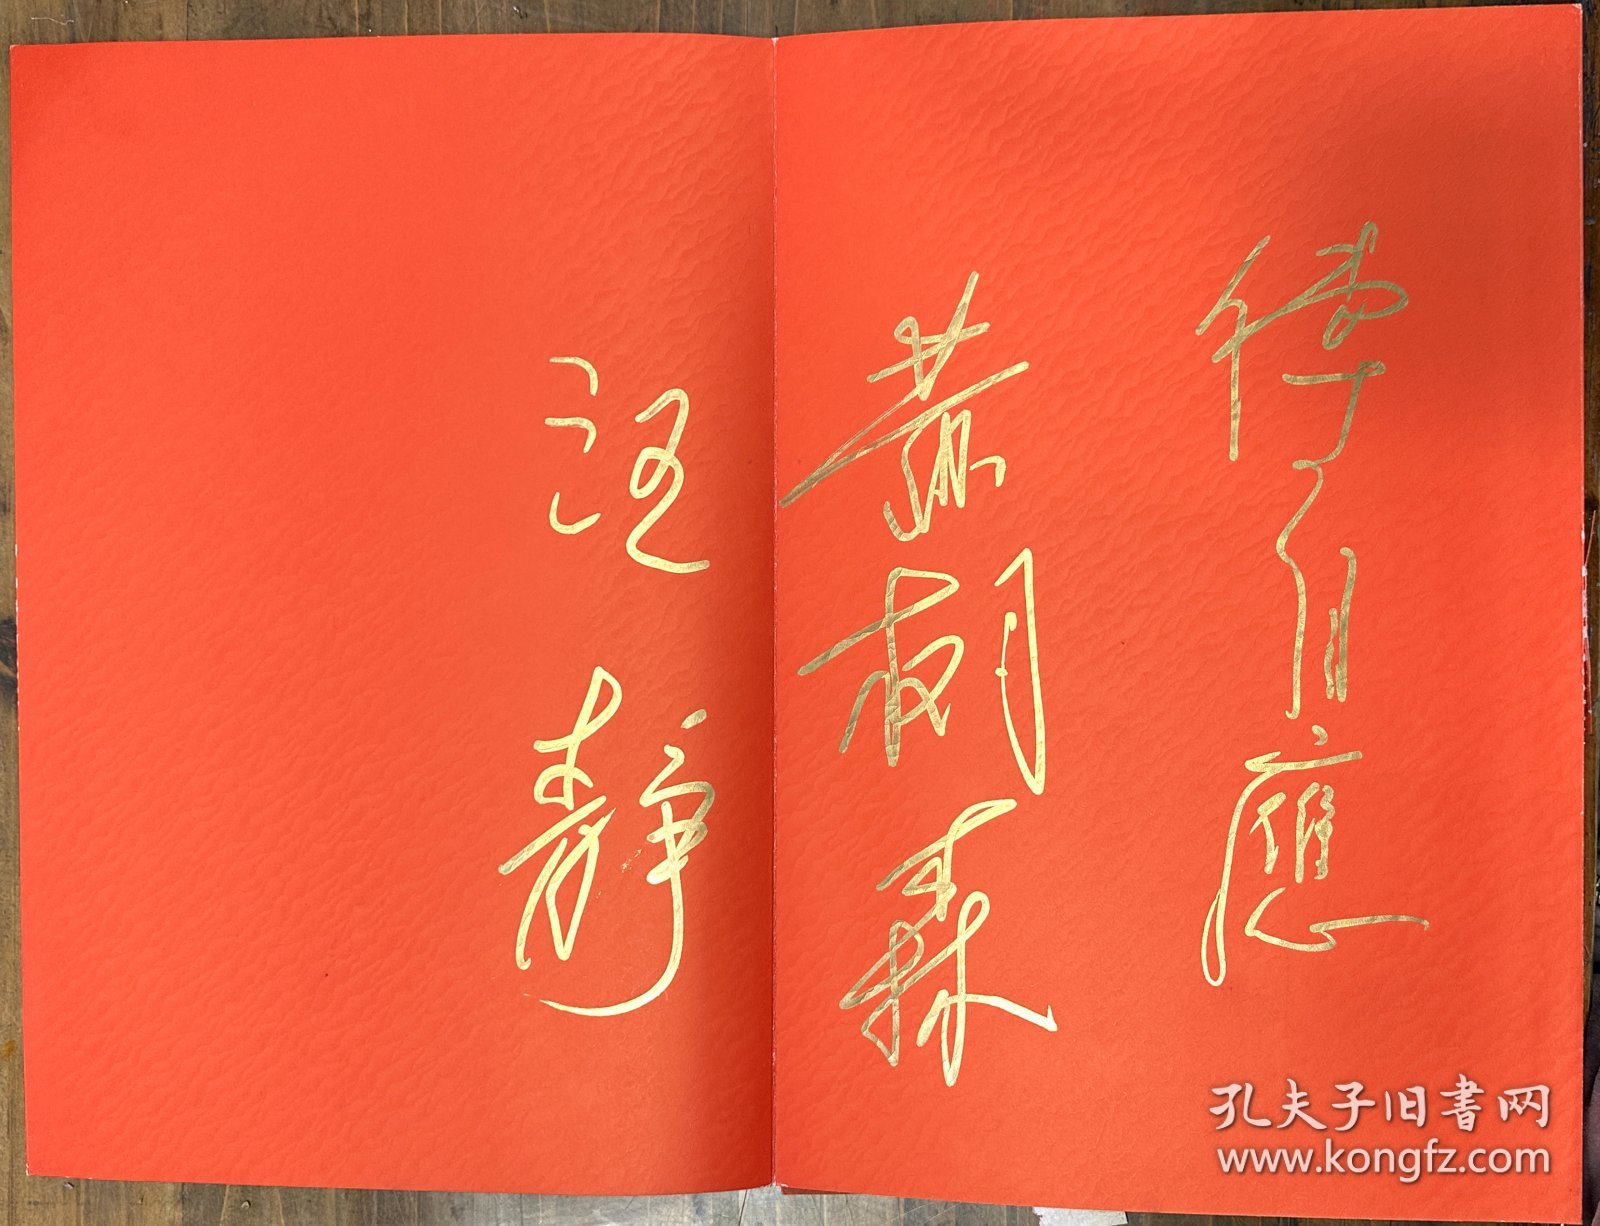 傅自應
黄树森
汪静
孔夫子旧书网
www.kongfz.com